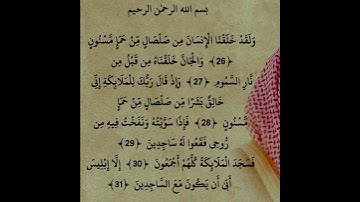 بسم الله الرحمن الرحيم
وَلَقَدْ خَلَقْنَا الْإِنسَانَ مِن صَلْصَالٍ مِّنْ حَمَإٍ مَّسْنُونٍ
﴿26﴾ وَالْجَانَّ خَلَقْنَاهُ مِن قَبْلُ مِن
نَّارِ السَّمُومِ ﴿27﴾ وَإِذْ قَالَ رَبُّكَ لِلْمَلَائِكَةِ إِنِّي
خَالِقٌ بَشَرًا مِّن صَلْصَالٍ مِّنْ حَمَإٍ
مَّسْنُونٍ ﴿28﴾ فَإِذَا سَوَّيْتُهُ وَنَفَخْتُ فِيهِ مِن
رُّوحِي فَقَعُوا لَهُ سَاجِدِينَ ﴿29﴾
فَسَجَدَ الْمَلَائِكَةُ كُلُّهُمْ أَجْمَعُونَ ﴿30﴾ إِلَّا إِبْلِيسَ
أَبَىٰ أَن يَكُونَ مَعَ السَّاجِدِينَ ﴿31﴾